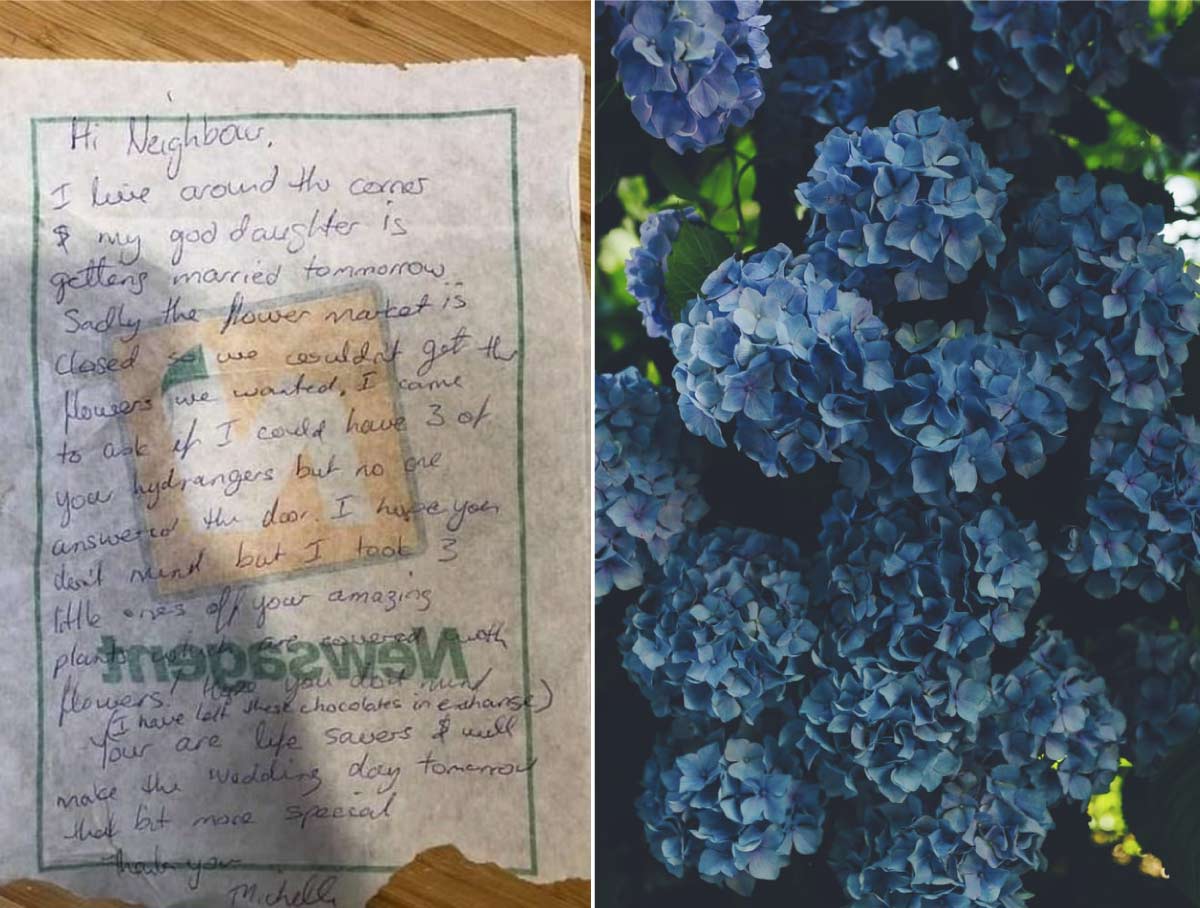 Hi Neighbour,
I live around the corner
& my god daughter is
getteng married tommorrow
Sadly the flower market is
closed so we couldn't get the
flowers we wanted. I came
to ask if I could have 3 of
your hydrangers but no one
answered the door. I hope you
don't mind but I took 3
little ones off your amazing
plants which are covered with
flowers! Hope you don't mind
(I have left these chocolates in exchange)
Your are life savers & will
make the wedding day tomorrow
that bit more special
Thank you
Michelle
Newsagent